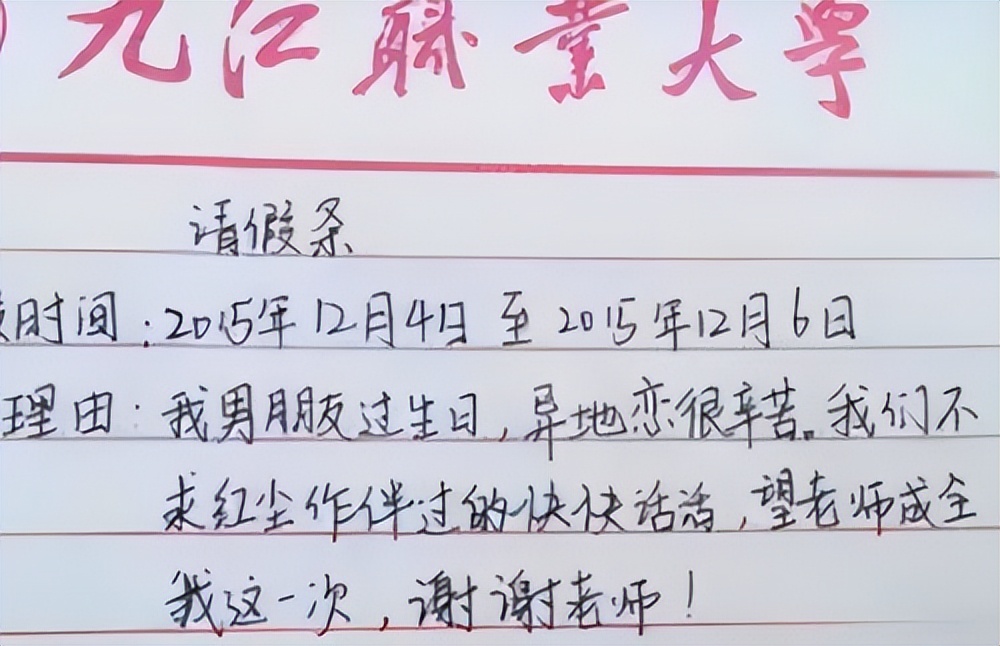 九江职业大学
请假条
时间：2015年12月4日至2015年12月6日
理由：我男朋友过生日，异地恋很辛苦。我们不
求红尘作伴过的快快活活，望老师成全
我这一次，谢谢老师！